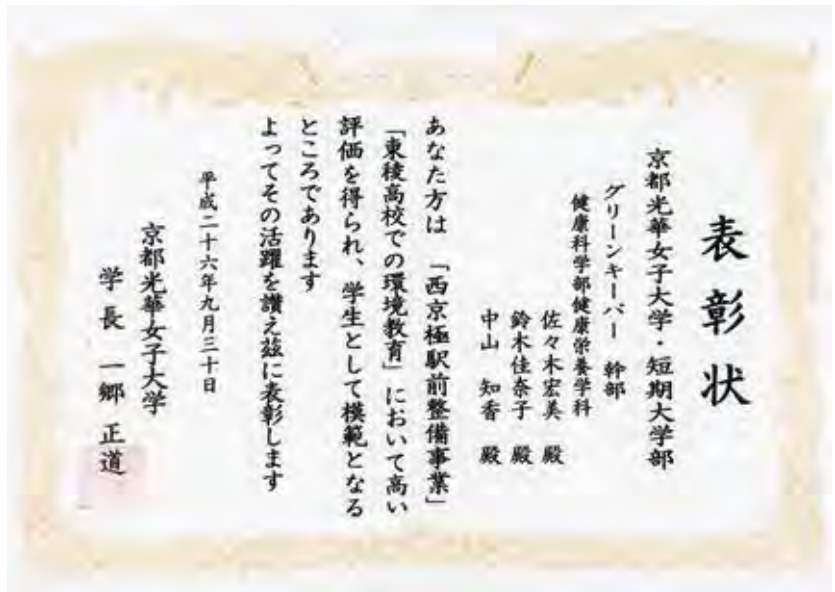 表彰状
京都光華女子大学・短期大学部
グリーンキーパー 幹部
健康科学部健康栄養学科
佐々木宏美 殿
鈴木佳奈子 殿
中山 知香 殿
あなた方は 「西京極駅前整備事業」
「東稜高校での環境教育」において高い
評価を得られ、学生として模範となる
ところであります
よってその活躍を讃え茲に表彰します
平成二十六年九月三十日
京都光華女子大学
学長 一郷 正道